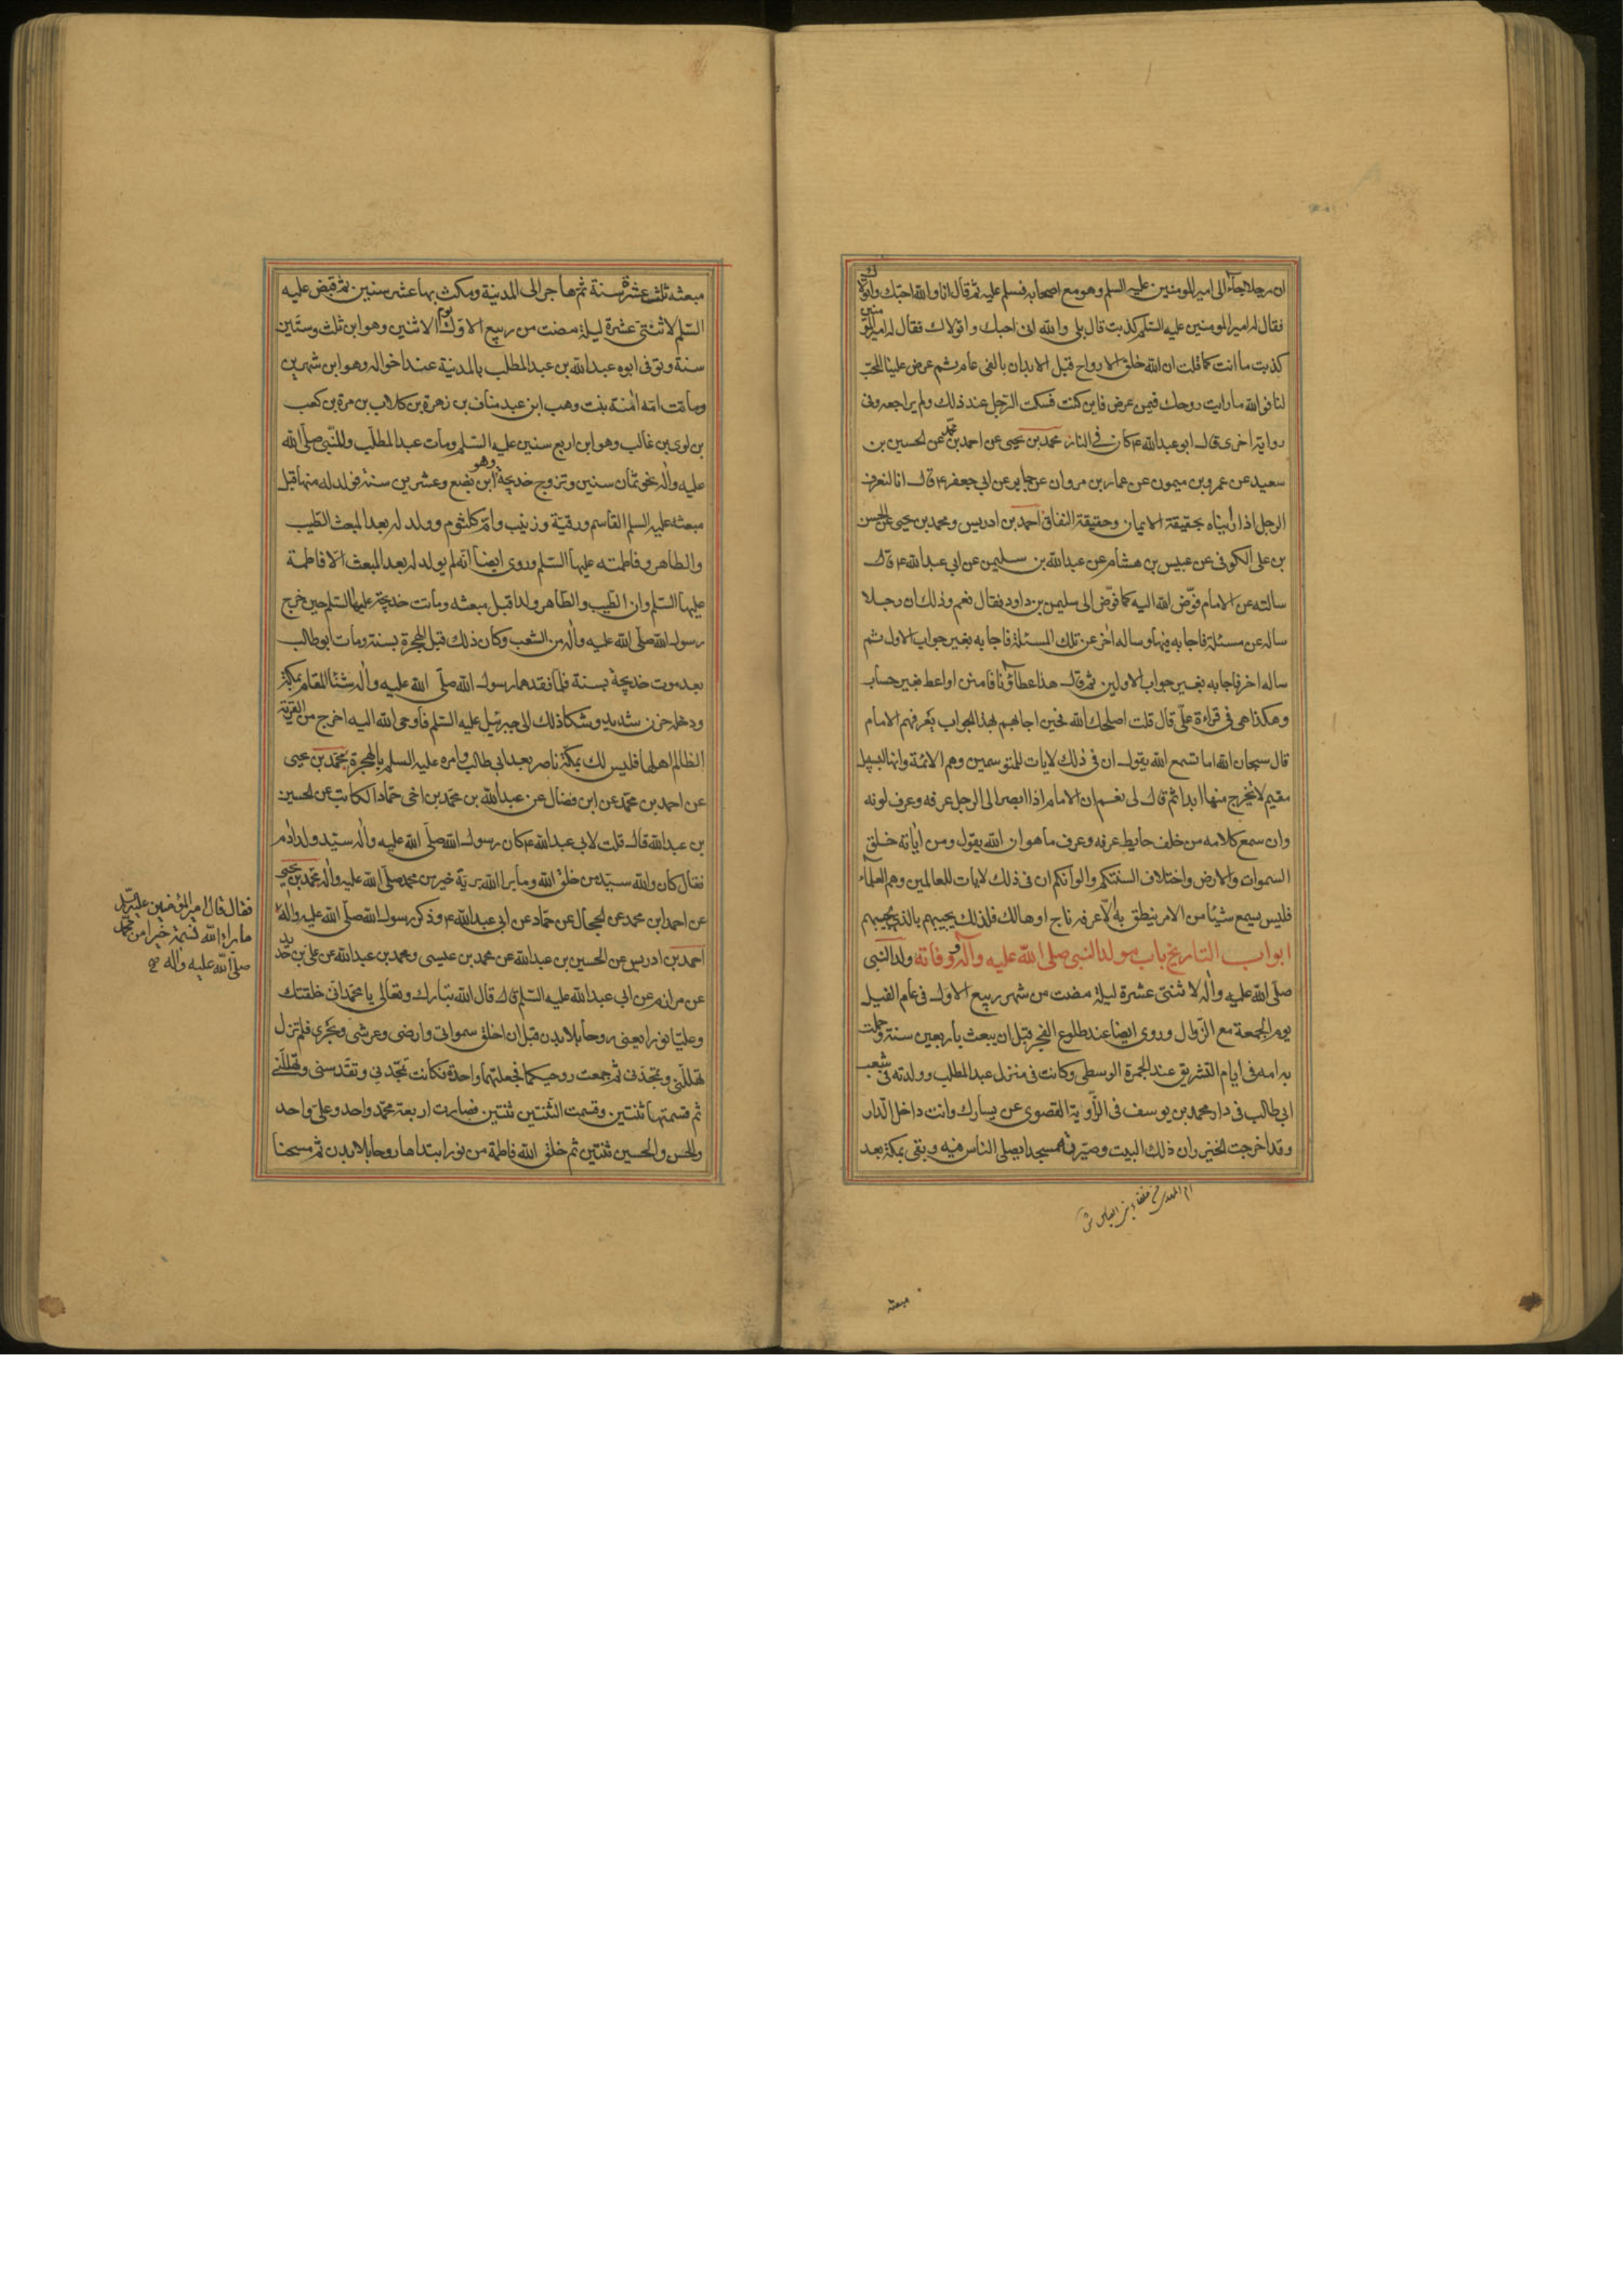 ان رجلا جاء الى امير المومنين عليه السلم وهو مع اصحابه فسلم عليه ثم قال انا والله احبك واتولاك
فقال له امير المومنين عليه السلم كذبت قال بلى والله انى احبك واتولاك فقال له امير المومنين
كذبت ما انت كما قلت ان الله خلق الارواح قبل الابدان بالفى عام ثم عرض علينا المحب
لنا فوالله ما رايت روحك فيمن عرض فاين كنت فسكت الرجل عند ذلك ولم يراجعه وفى
رواية اخرى قال ابو عبدالله ع كان فى النار محمد بن يحيى عن احمد بن محمد عن الحسين بن
سعيد عن عمرو بن ميمون عن عمار بن مروان عن جابر عن ابى جعفر ع قال انا لنعرف
الرجل اذا رايناه بحقيقة الايمان وحقيقة النفاق احمد بن ادريس ومحمد بن يحيى عن الحسن
بن على الكوفى عن عبيس بن هشام عن عبدالله بن سليمن عن ابى عبدالله ع قال
سالته عن الامام فوّض الله اليه كما فوّض الى سليمن بن داود فقال نعم وذلك ان رجلا
ساله عن مسئلة فاجابه فيها وساله اخر عن تلك المسئلة فاجابه بغير جواب الاول ثم
ساله اخر فاجابه بغير جواب الاولين ثم قال هذا عطاؤنا فامنن او اعط بغير حساب
وهكذا هى فى قراءة على قال قلت اصلحك الله فحين اجابهم بهذا الجواب يعرفهم الامام
قال سبحان الله اما تسمع الله يقول ان فى ذلك لايات للمتوسمين وهم الائمة وانها لبسبيل
مقيم لا يخرج منها ابدا ثم قال لى نعم ان الامام اذا ابصر الى الرجل عرفه وعرف لونه
وان سمع كلامه من خلف حايط عرفه وعرف ما هو ان الله يقول ومن اياته خلق
السموات والارض واختلاف السنتكم والوانكم ان فى ذلك لايات للعالمين وهم العلماء
فليس يسمع شيئا من الامر ينطق به الا عرفه ناج او هالك فلذلك يجيبهم بالذى يجيبهم
ابواب التاريخ باب مولد النبى صلى الله عليه وآله ووفاته ولد النبى
صلى الله عليه واله لاثنتى عشرة ليلة مضت من شهر ربيع الاول فى عام الفيل
يوم الجمعة مع الزوال وروى ايضا عند طلوع الفجر قبل ان يبعث باربعين سنة وحملت
به امه فى ايام التشريق عند الجمرة الوسطى وكانت فى منزل عبد المطلب وولدته فى شعب
ابى طالب فى دار محمد بن يوسف فى الزاوية القصوى عن يسارك وانت داخل الدار
وقد اخرجت الخيزران ذلك البيت وصيرته مسجدا يصلى الناس فيه وبقى بمكة بعد
مبعثه
مبعثه ثلث عشرة سنة ثم هاجر الى المدينة ومكث بها عشر سنين ثم قبض عليه
السلم لاثنتى عشرة ليلة مضت من ربيع الاول يوم الاثنين وهو ابن ثلث وستين
سنة وتوفى ابوه عبدالله بن عبد المطلب بالمدينة عند اخواله وهو ابن شهرين
وماتت امه امنة بنت وهب ابن عبد مناف بن زهرة بن كلاب بن مرة بن كعب
بن لوى بن غالب وهو ابن اربع سنين عليه السلم ومات عبد المطلب وللنبى صلى الله
عليه واله نحو ثمان سنين وتزوج خديجة وهو ابن بضع وعشرين سنة فولد له منها قبل
مبعثه عليه السلم القاسم ورقية وزينب وام كلثوم وولد له بعد المبعث الطيب
والطاهر وفاطمة عليها السلم وروى ايضا انه لم يولد له بعد المبعث الا فاطمة
عليها السلم وان الطيب والطاهر ولدا قبل مبعثه وماتت خديجة عليها السلم حين خرج
رسول الله صلى الله عليه واله من الشعب وكان ذلك قبل الهجرة بسنة ومات ابو طالب
بعد موت خديجة بسنة فلما فقدهما رسول الله صلى الله عليه واله شنا المقام بمكة
ودخله حزن شديد وشكا ذلك الى جبرئيل عليه السلم فاوحى الله اليه اخرج من القرية
الظالم اهلها فليس لك بمكة ناصر بعد ابى طالب وامره عليه السلم بالهجرة محمد بن يحيى
عن احمد بن محمد عن ابن فضال عن عبدالله بن محمد بن اخى حماد الكاتب عن الحسين
بن عبدالله قال قلت لابى عبدالله ع كان رسول الله صلى الله عليه واله سيد ولد ادم
فقال كان والله سيد من خلق الله وما برا الله برية خير من محمد صلى الله عليه واله محمد بن يحيى
عن احمد ابن محمد عن الحجال عن حماد عن ابى عبدالله ع وذكر رسول الله صلى الله عليه واله
فقال قال امير المؤمنين عليه السلم
ما برا الله نسمة خيرا من محمد
صلى الله عليه واله صح
احمد بن ادريس عن الحسين بن عبدالله عن محمد بن عيسى ومحمد بن عبدالله عن على بن حديد
عن مرازم عن ابى عبدالله عليه السلم قال قال الله تبارك وتعالى يا محمد انى خلقتك
وعليا نورا يعنى روحا بلا بدن قبل ان اخلق سمواتى وارضى وعرشى وبحرى فلم تزل
تهللنى وتمجدنى ثم جمعت روحيكما فجعلتهما واحدة فكانت تمجدنى وتقدسنى وتهللنى
ثم قسمتها ثنتين وقسمت الثنتين ثنتين فصارت اربعة محمد واحد وعلى واحد
والحسن والحسين ثنتين ثم خلق الله فاطمة من نور ابتداها روحا بلا بدن ثم مسحنا